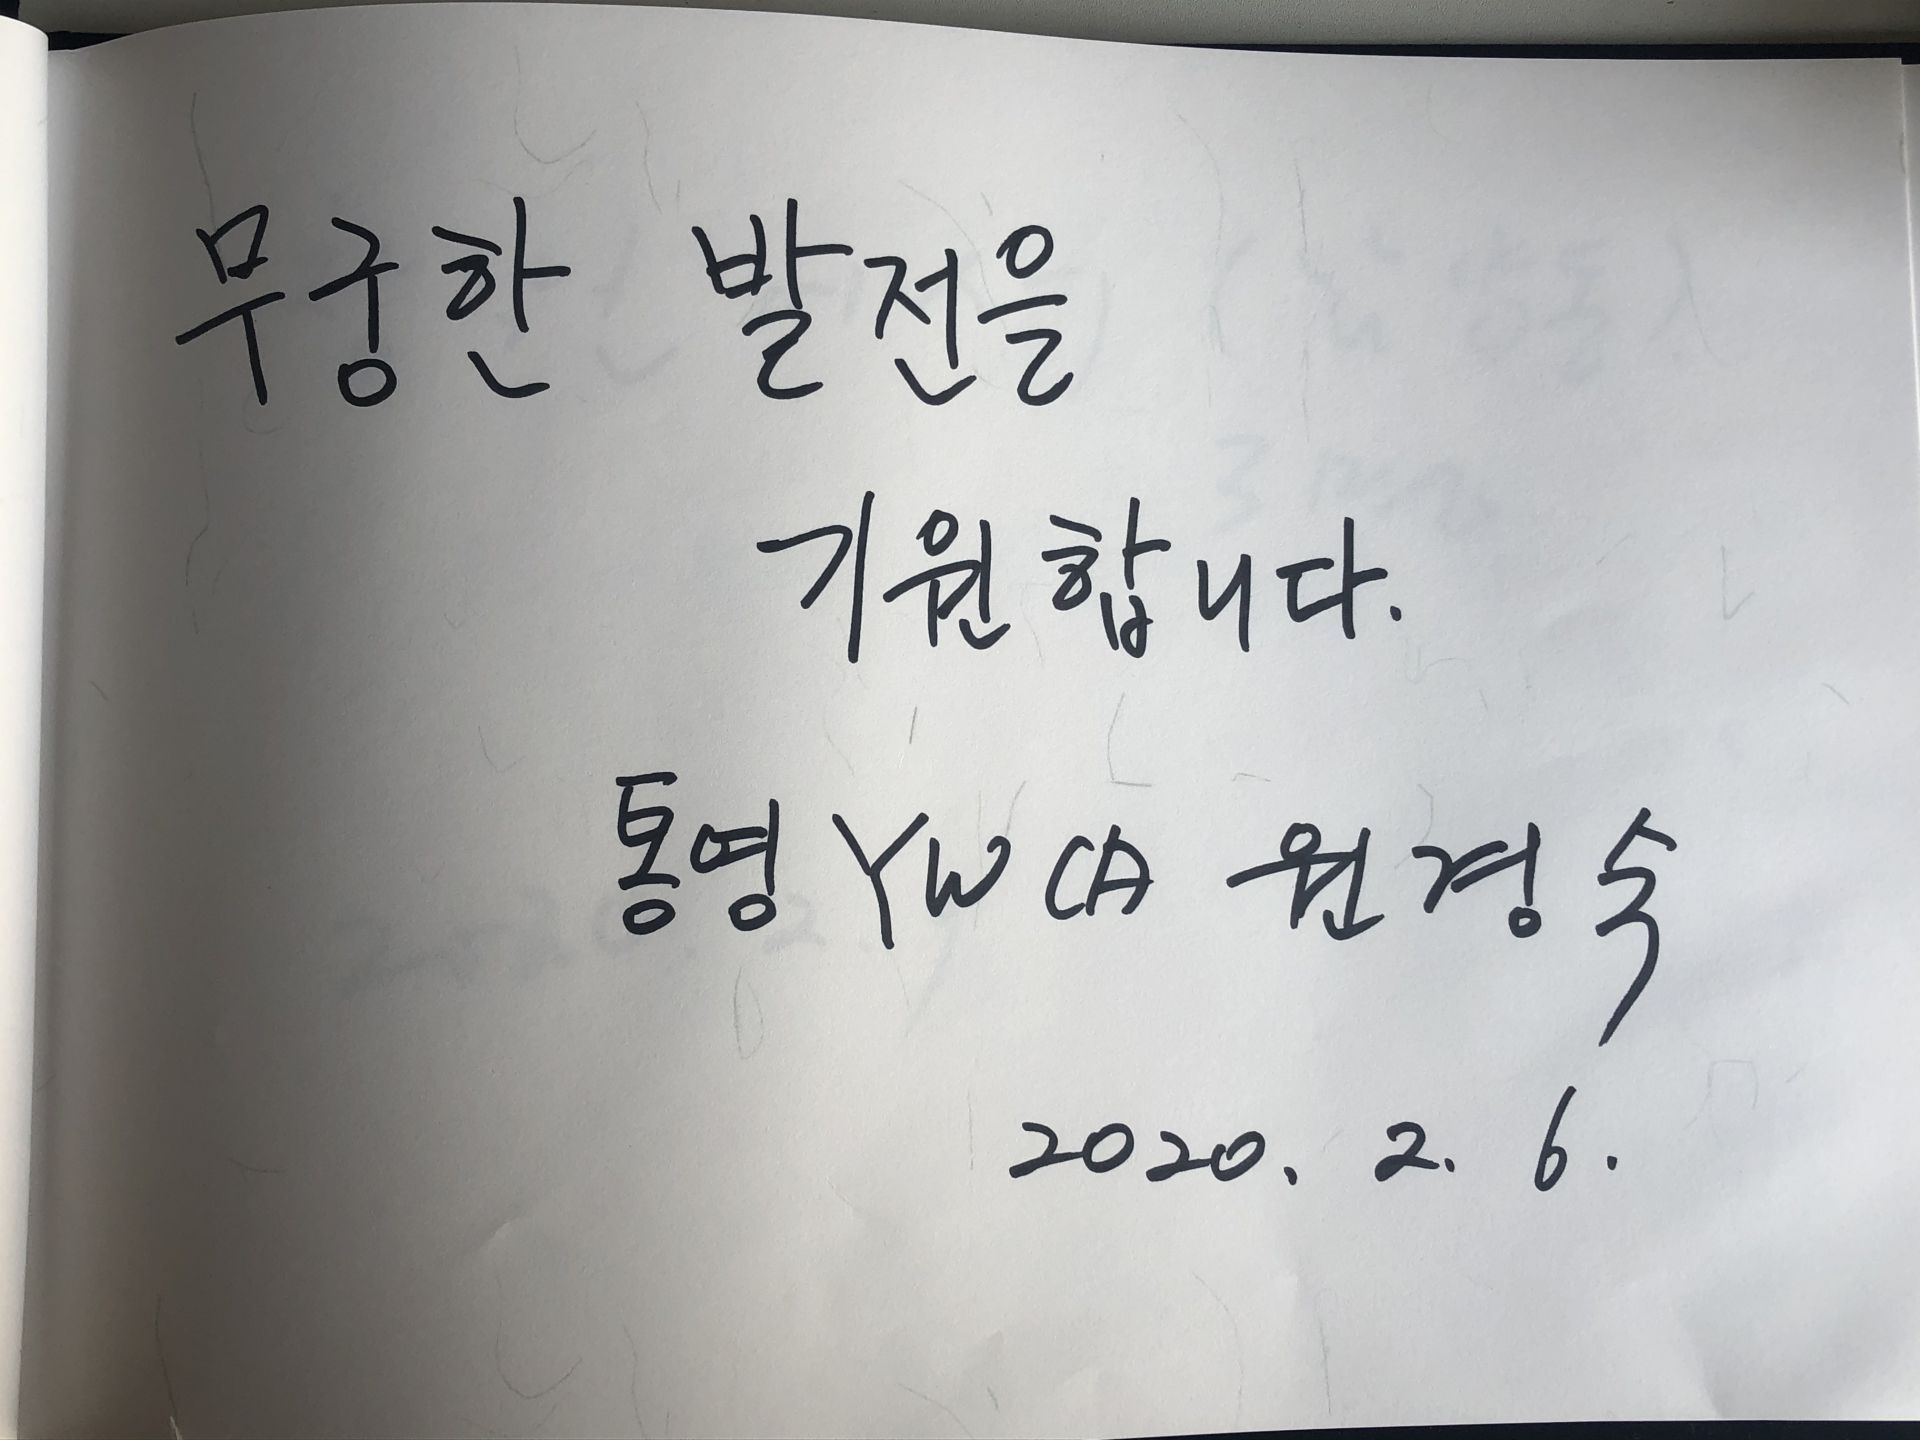 무궁한 발전을
기원합니다.
통영 YWCA 원경숙
2020. 2. 6.